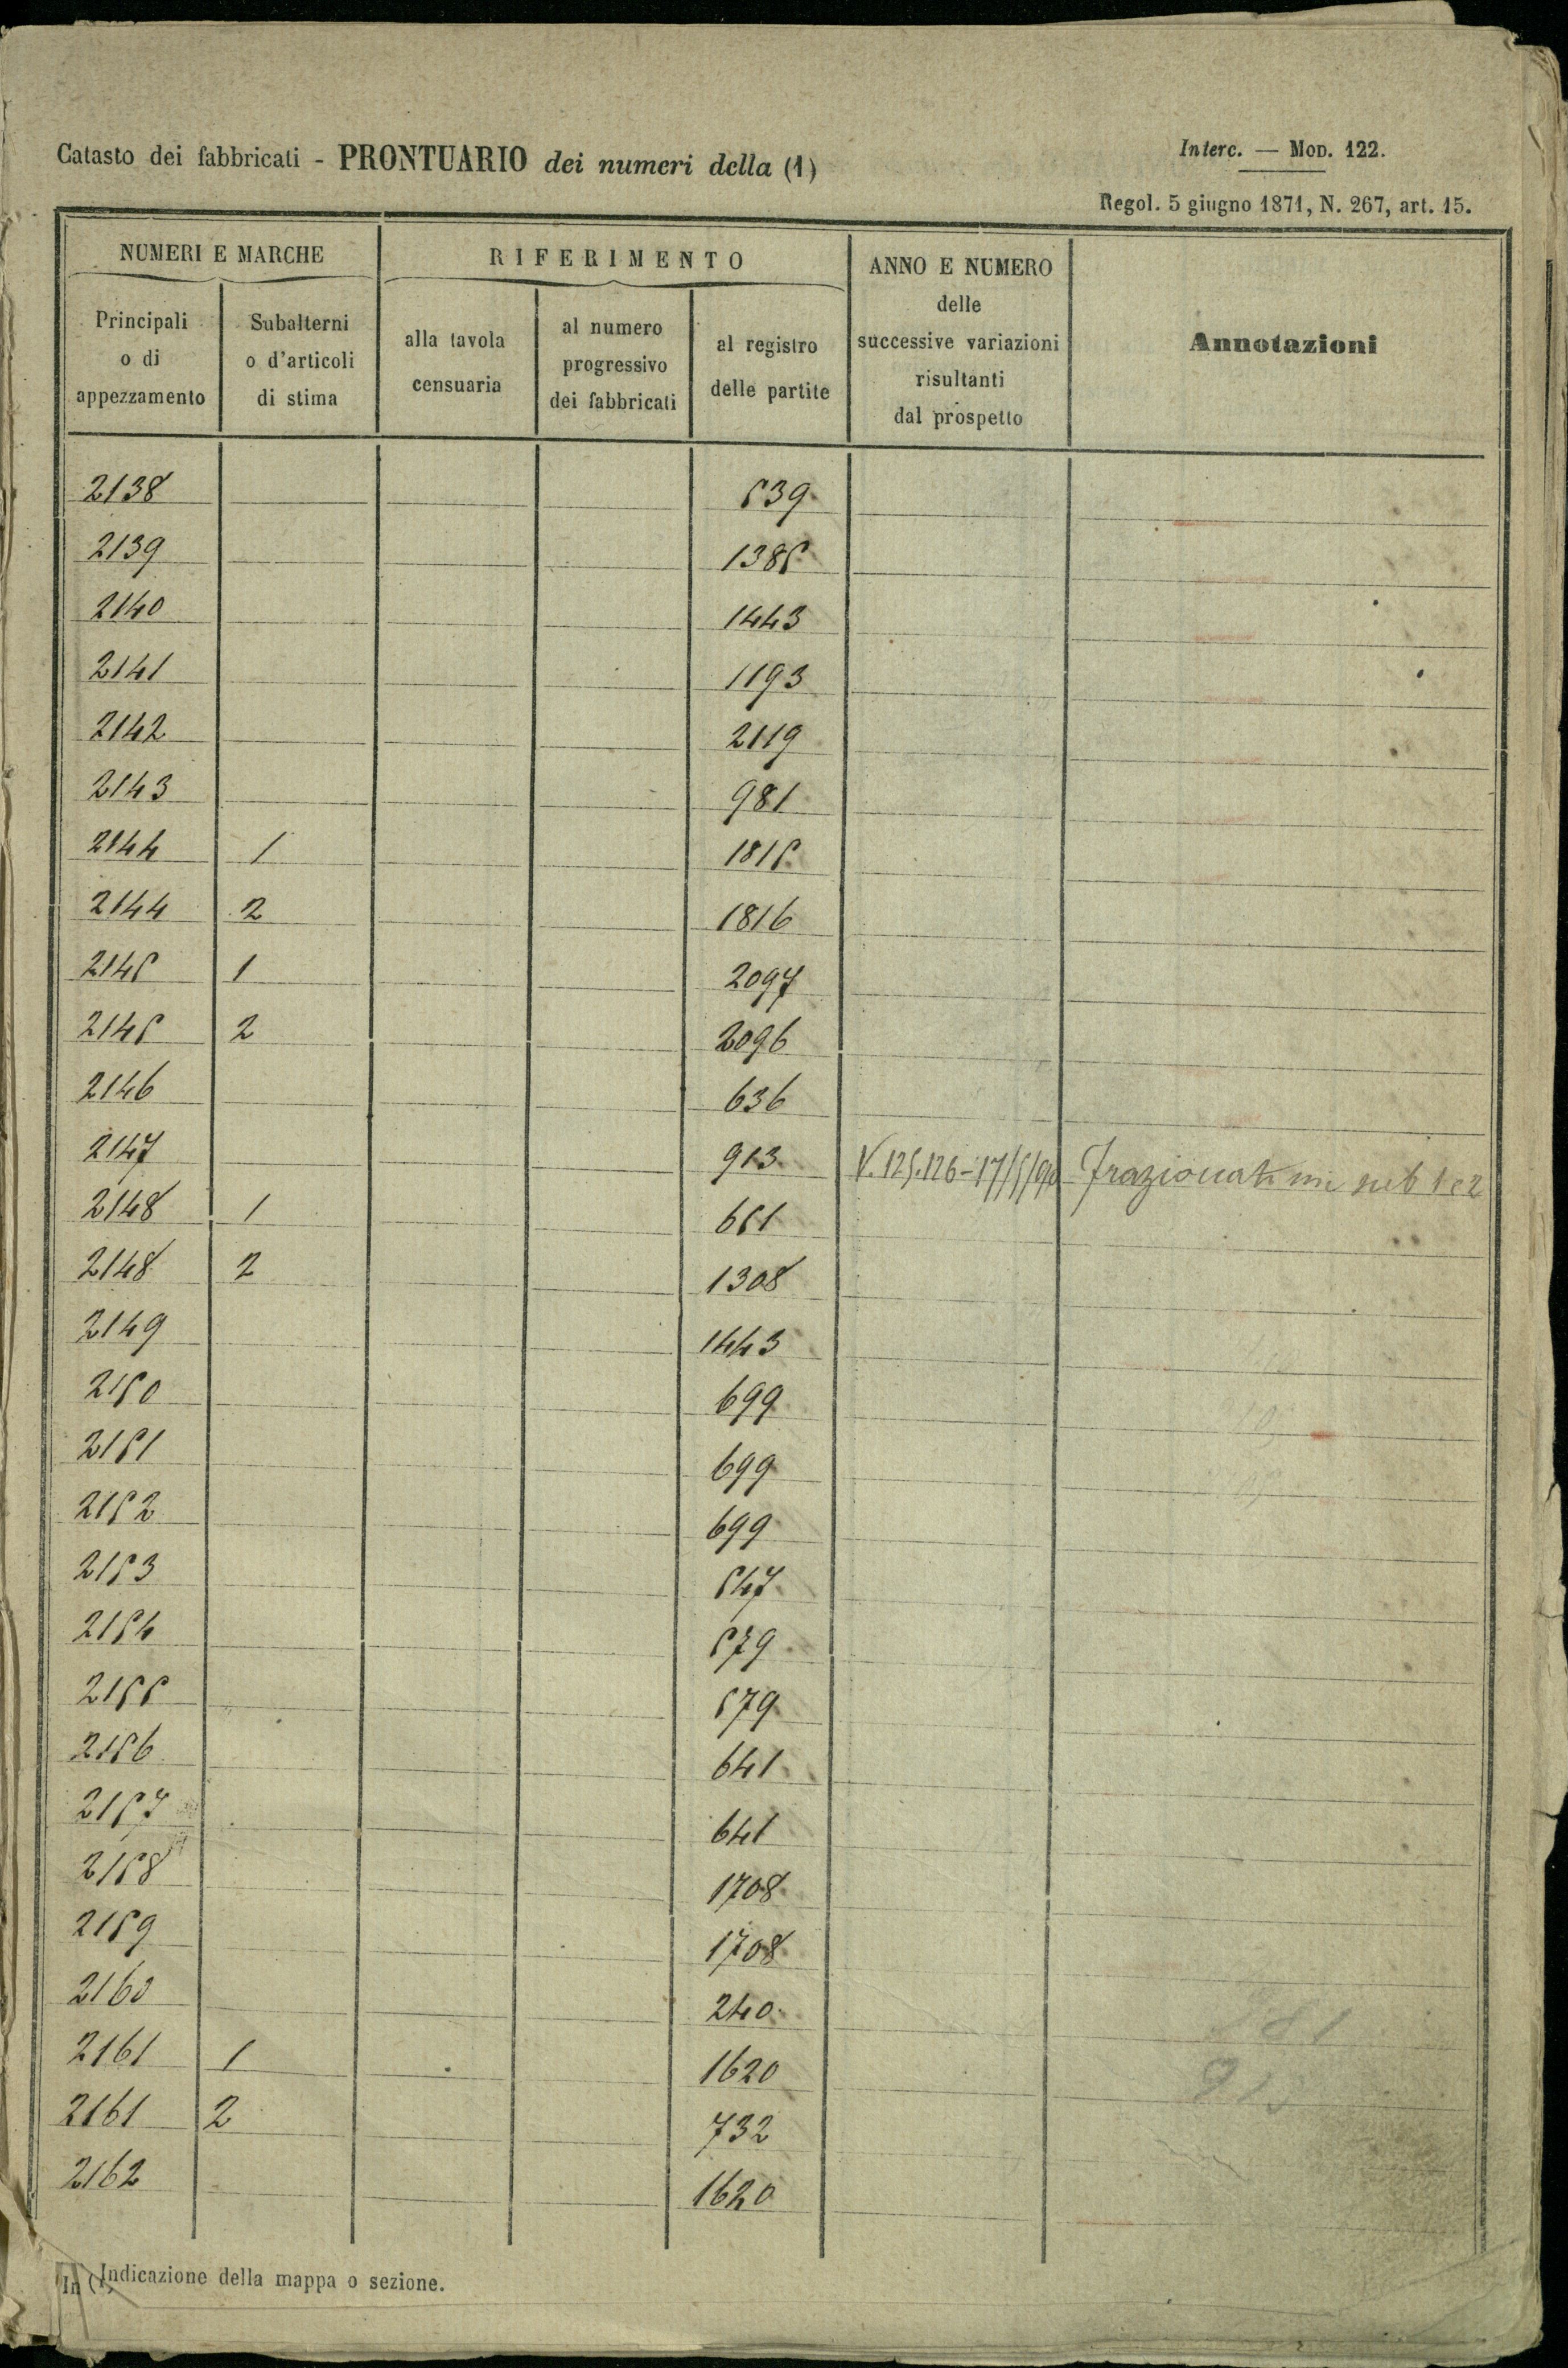 Catasto dei fabbricati - PRONTUARIO dei numeri della (1)
Interc. — Mod. 122.
Regol. 5 giugno 1871, N. 267, art. 15.
NUMERI E MARCHE
RIFERIMENTO
ANNO E NUMERO
delle
successive variazioni
risultanti
dal prospetto
Annotazioni
Principali
o di
appezzamento
Subalterni
o d'articoli
di stima
alla tavola
censuaria
al numero
progressivo
dei fabbricati
al registro
delle partite
2138 539
2139 1385
2140 1443
2141 1193
2142 2119
2143 981
2144 1 1815
2144 2 1816
2145 1 2097
2145 2 2096
2146 636
2147 913 V. 125.126-17/5/90 Frazionato in sub 1 e 2
2148 1 651
2148 2 1308
2149 1443
2150 699
2151 699
2152 699
2153 547
2154 579
2155 579
2156 641
2157 641
2158 1708
2159 1708
2160 240
2161 1 1620
2161 2 732
2162 1620
Indicazione della mappa o sezione.